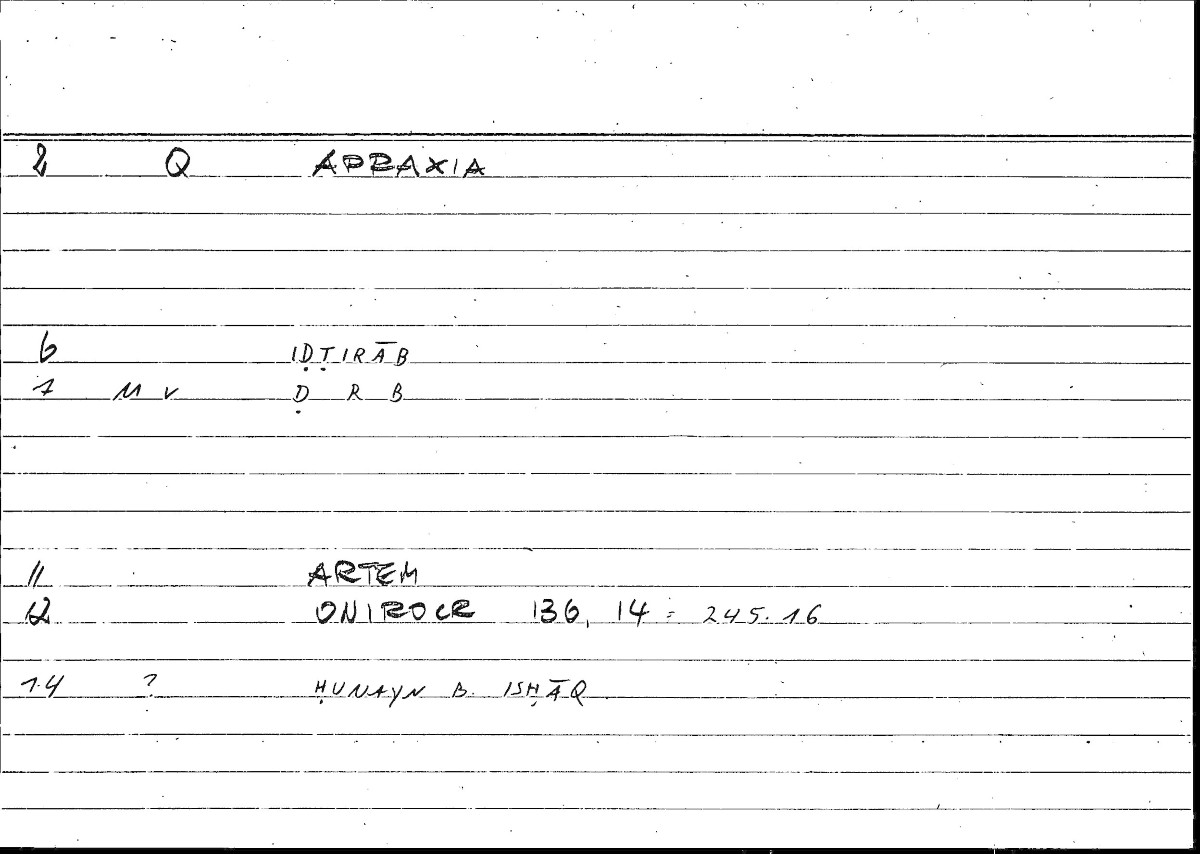 2 Q APRAXIA
6 IḌṬIRĀB
7 M V Ḍ R B
11 ARTEM
12 ONIROCR 136, 14 = 245.16
14 ? ḤUNAYN B. ISḤĀQ